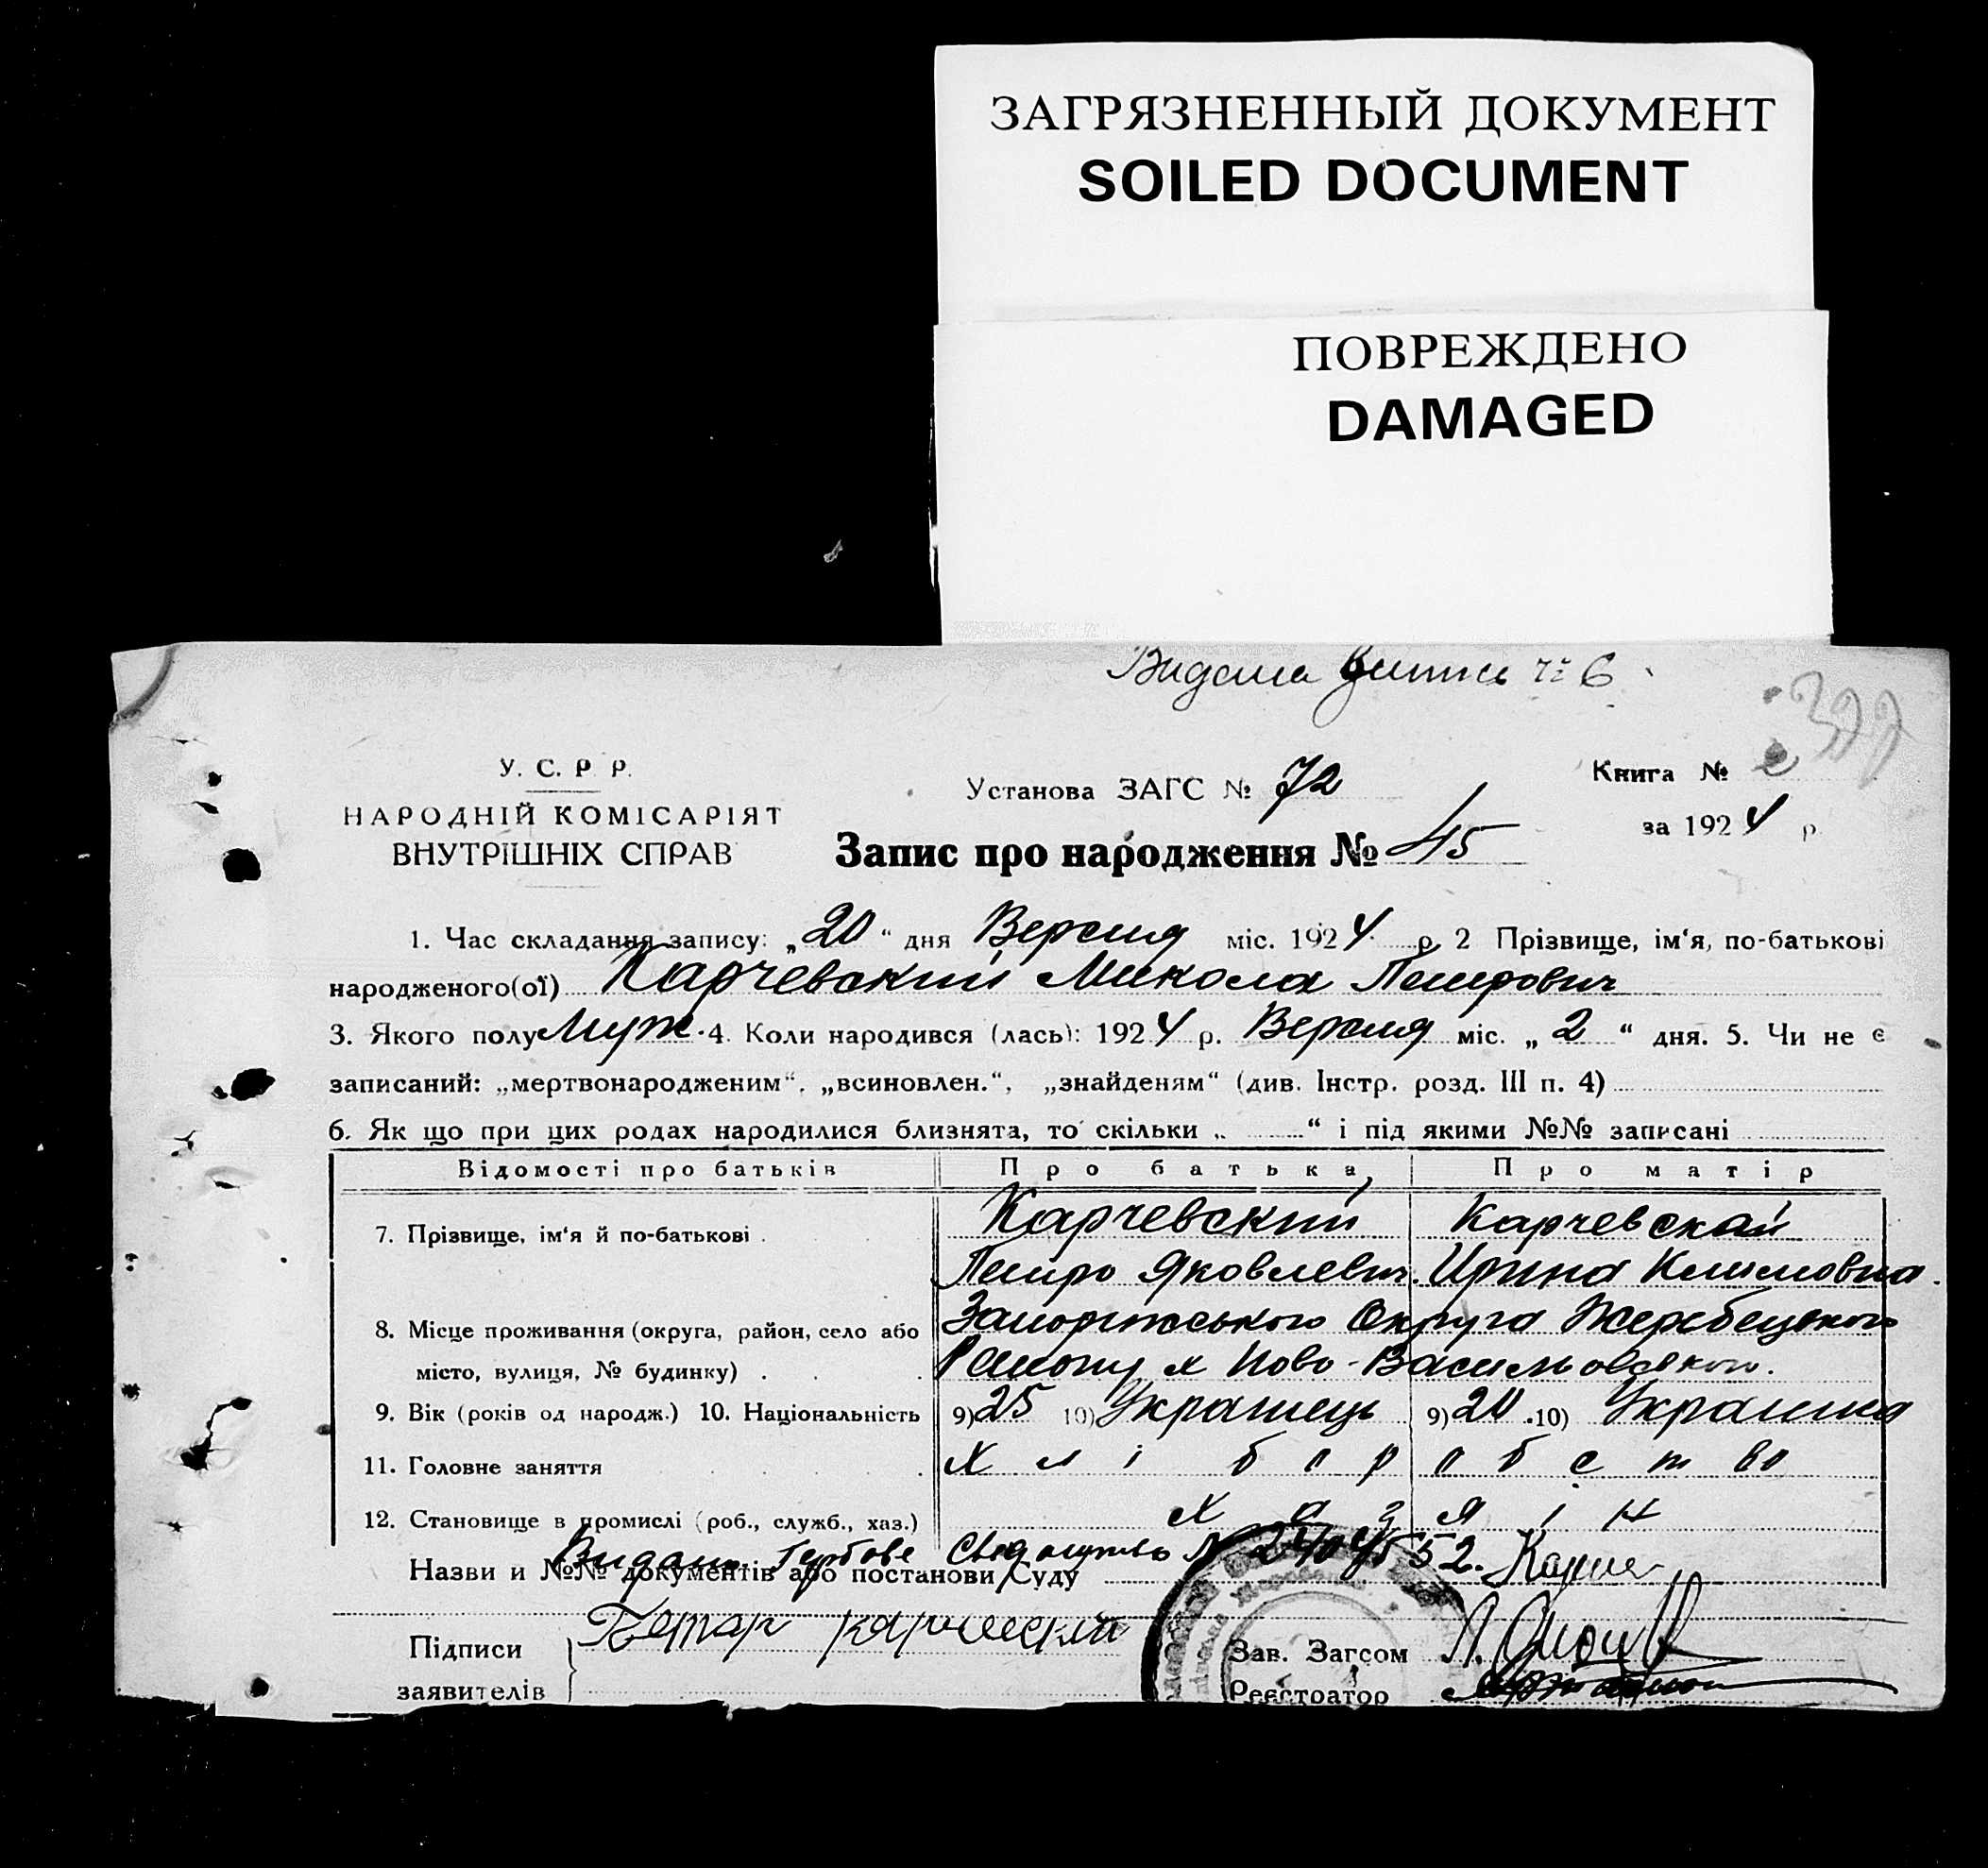 ЗАГРЯЗНЕННЫЙ ДОКУМЕНТ
SOILED DOCUMENT
ПОВРЕЖДЕНО
DAMAGED
Видана № 6
У. С. Р. Р.
НАРОДНІЙ КОМІСАРІЯТ
ВНУТРІШНІХ СПРАВ
Установа ЗАГС № 72
Книга №
за 1924 р
Запис про народження № 45
1. Час складання запису: „20“ дня Версня міс. 1924 р. 2 Прізвище, ім‘я, по-батькові
народженого(ої) Карчевский Микола Петрович
3. Якого полу Муж. 4. Коли народився (лась): 1924 р. Версня міс. „2“ дня. 5. Чи не є
записаний: „мертвонародженим“, „всиновлен.“, „знайденям“ (див. Інстр. розд. III п. 4)
6. Як що при цих родах народилися близнята, то скільки „ “ і під якими №№ записані
Відомості про батьків Про батька Про матір
7. Прізвище, ім‘я й по-батькові Карчевский Карчевскай
Петро Яковлевич Ирина Климовна
8. Місце проживання (округа, район, село або Запоріжського Округа Жеребецького
місто, вулиця, № будинку) Району Ново-Васильовського.
9. Вік (років од народж.) 10. Національність 9) 25 10) Украінець 9) 20 10) Украінка
11. Головне заняття Хліборобство
12. Становище в промислі (роб., служб., хаз.) Хазяін
Видано Гербове Свідоцтво №
Назви и №№ документів або постанови Суду
Підписи Петар Карчевский Зав. Загсом
заявителів Реєстратор